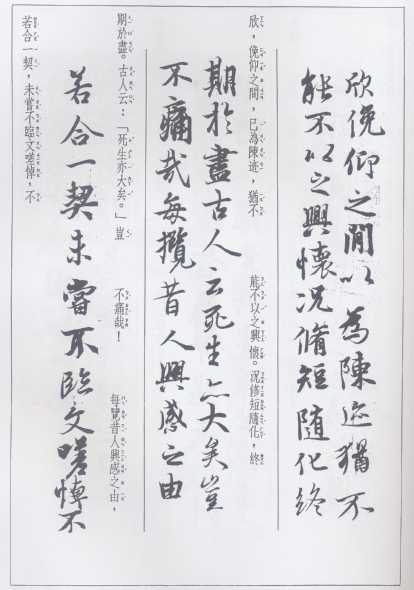 欣俛仰之閒以為陳迹猶不
能不以之興懷况脩短隨化終
欣，俛仰之間，已為陳迹，猶不
能不以之興懷。況修短隨化，終
期於盡古人云死生亦大矣豈
不痛哉每攬昔人興感之由
期於盡。古人云：「死生亦大矣。」豈
不痛哉！每覽昔人興感之由，
若合一契未嘗不臨文嗟悼不
若合一契，未嘗不臨文嗟悼，不